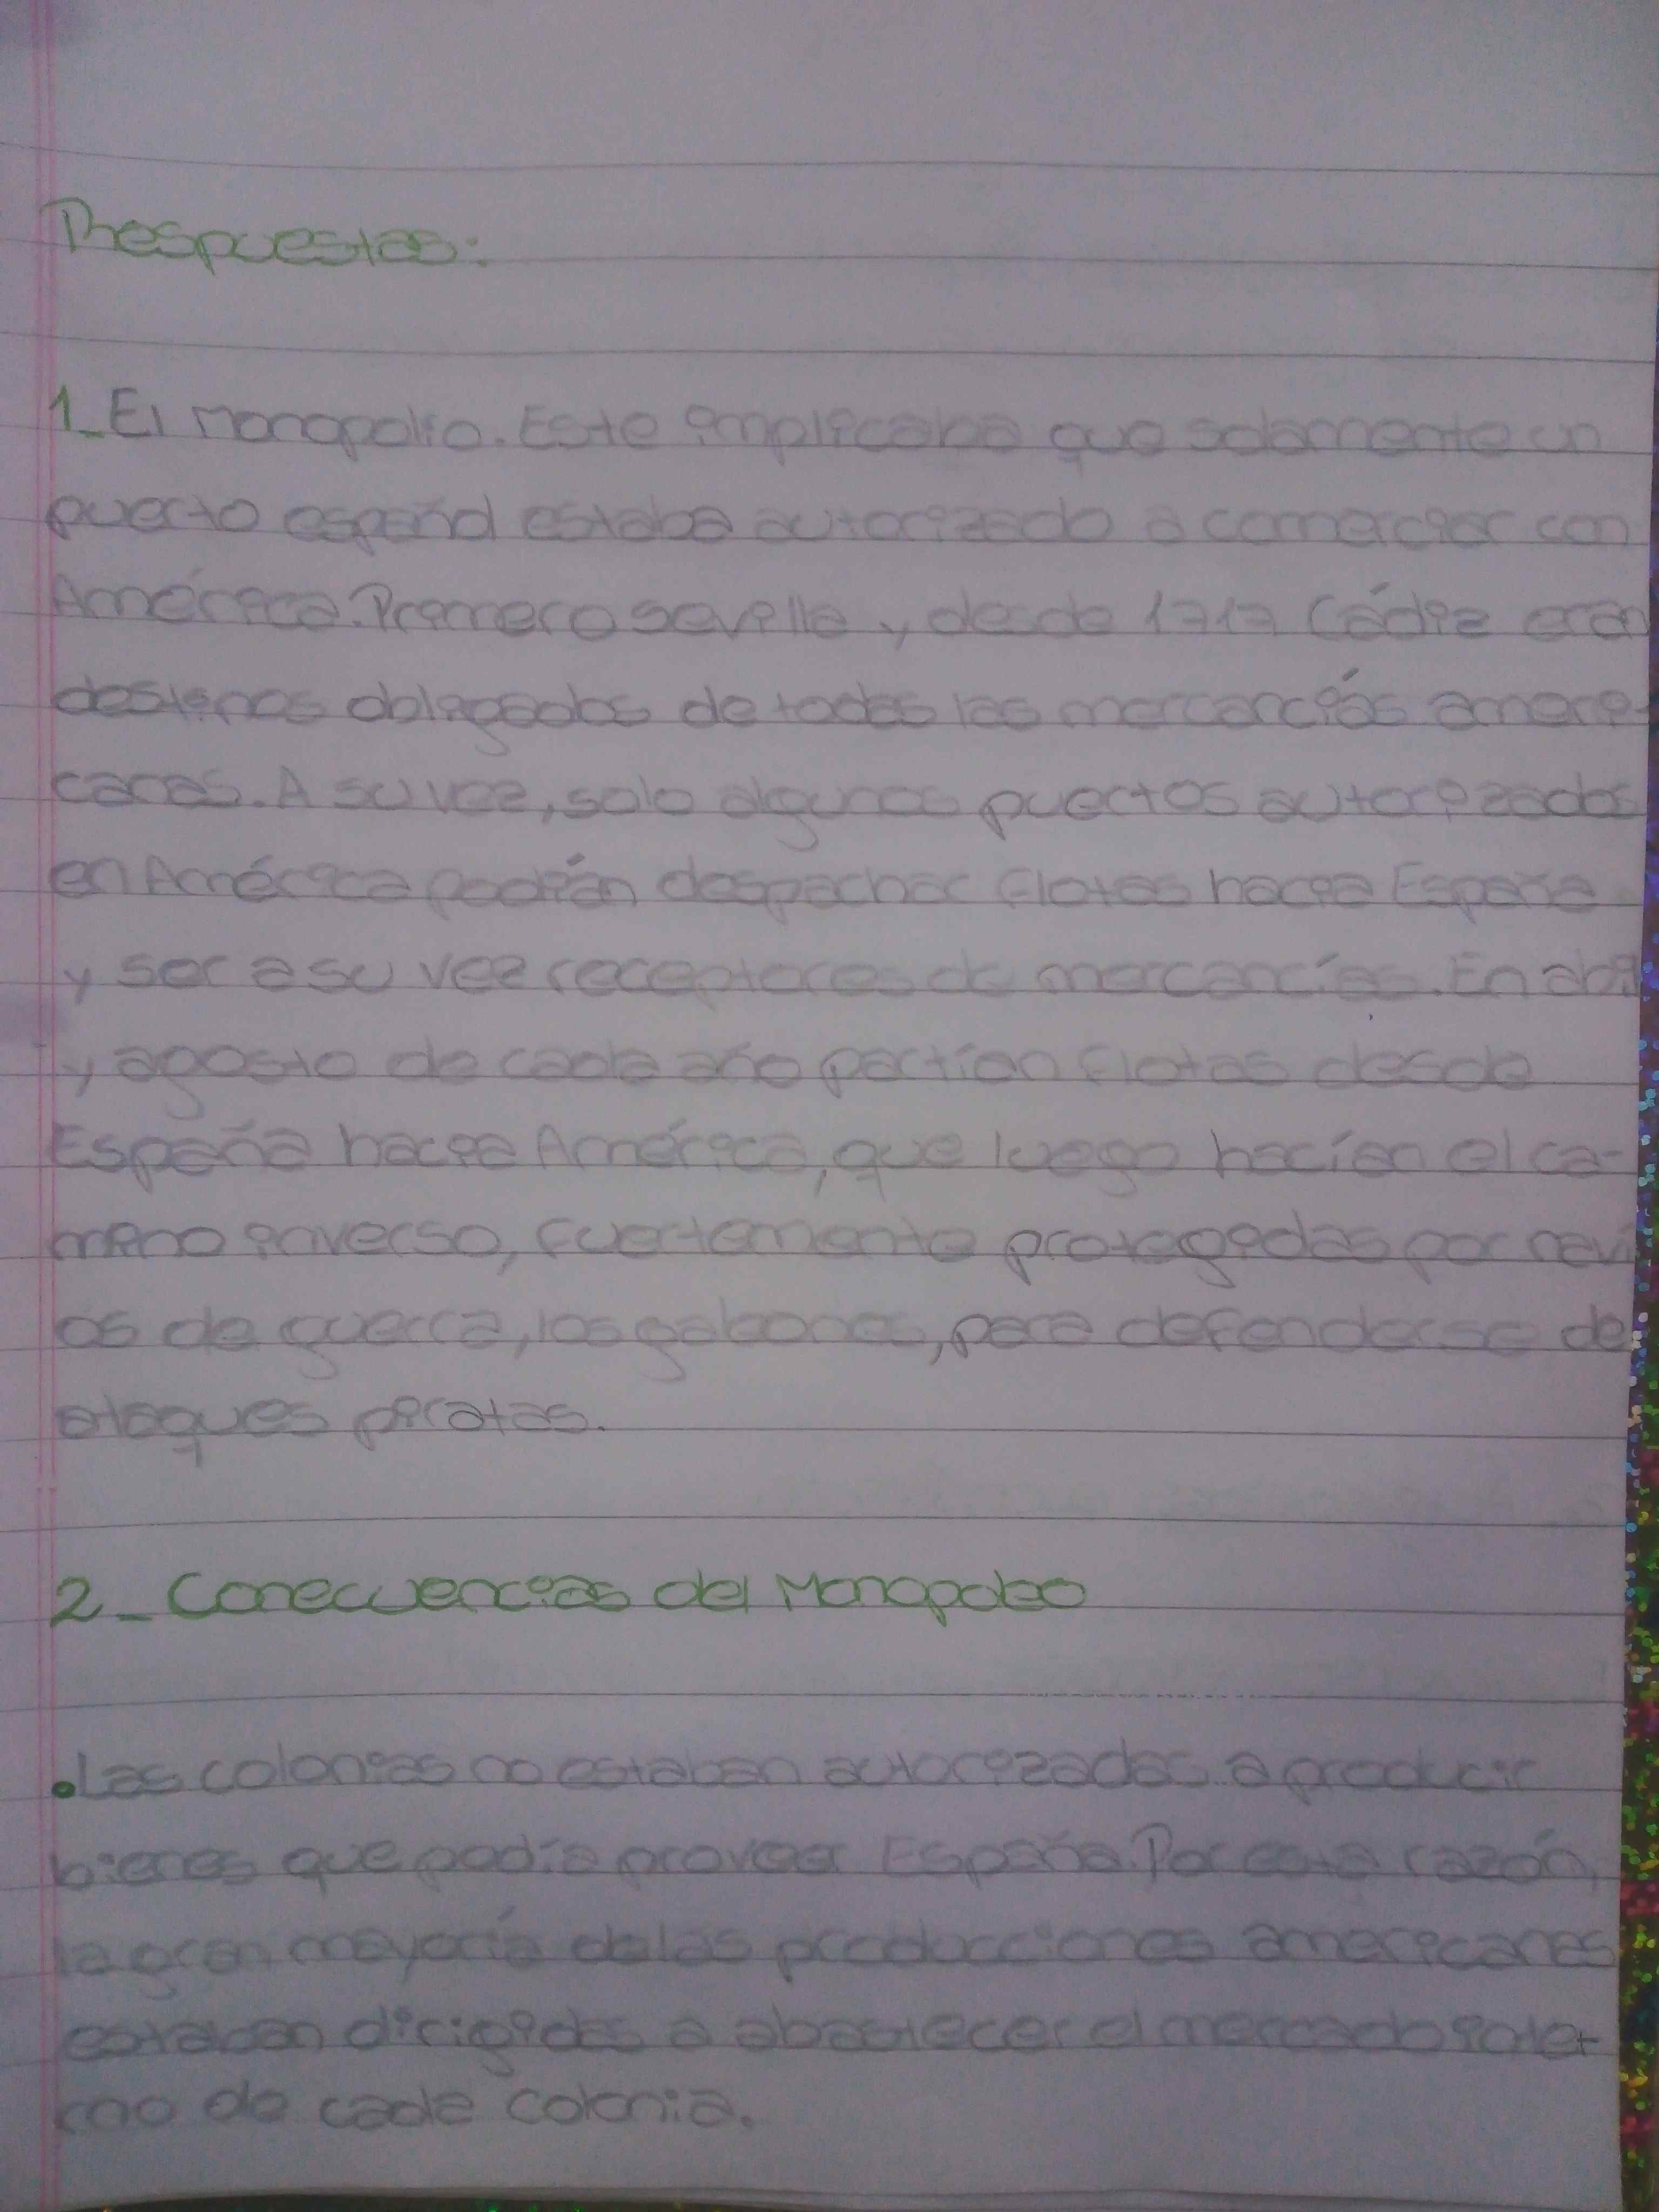 Respuestas:
1_ El monopolio. Este implicaba que solamente un
puerto español estaba autorizado a comerciar con
América. Primero Sevilla y desde 1717 Cádiz eran
destinos obligados de todas las mercancías ameri-
canas. A su vez, solo algunos puertos autorizados
en América podían despachar flotas hacia España
y ser a su vez receptores de mercancías. En abril
y agosto de cada año partían flotas desde
España hacia América, que luego hacían el ca-
mino inverso, fuertemente protegidas por navi
os de guerra, los galeones, para defenderse de
ataques piratas.
2_ Conecuencias del Monopolio
•Las colonias no estaban autorizadas a producir
bienes que podía proveer España. Por esta razón,
la gran mayoría de las producciones americanas
estaban dirigidas a abastecer el mercado inter
rno de cada colonia.